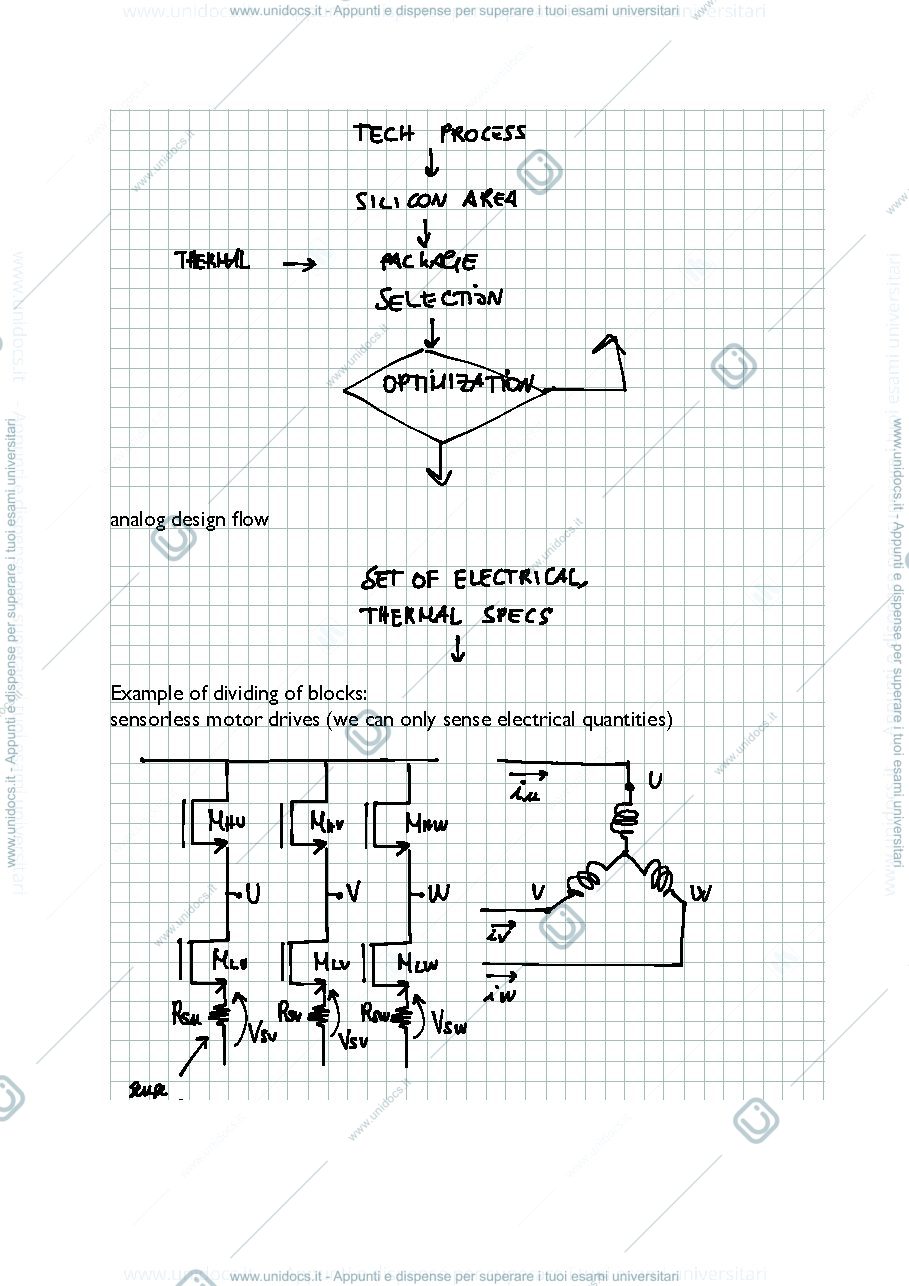 www.unidocs.it - Appunti e dispense per superare i tuoi esami universitari
TECH PROCESS
SILICON AREA
THERMAL → PACKAGE
SELECTION
OPTIMIZATION
analog design flow
SET OF ELECTRICAL,
THERMAL SPECS
Example of dividing of blocks:
sensorless motor drives (we can only sense electrical quantities)
iu U
MHU MHV MHW
U V W V W
iv
MLU MLV MLW
iw
RSU RSV RSW
VSU VSV VSW
www.unidocs.it - Appunti e dispense per superare i tuoi esami universitari
www.unidocs.it - Appunti e dispense per superare i tuoi esami universitari
www.unidocs.it - Appunti e dispense per superare i tuoi esami universitari